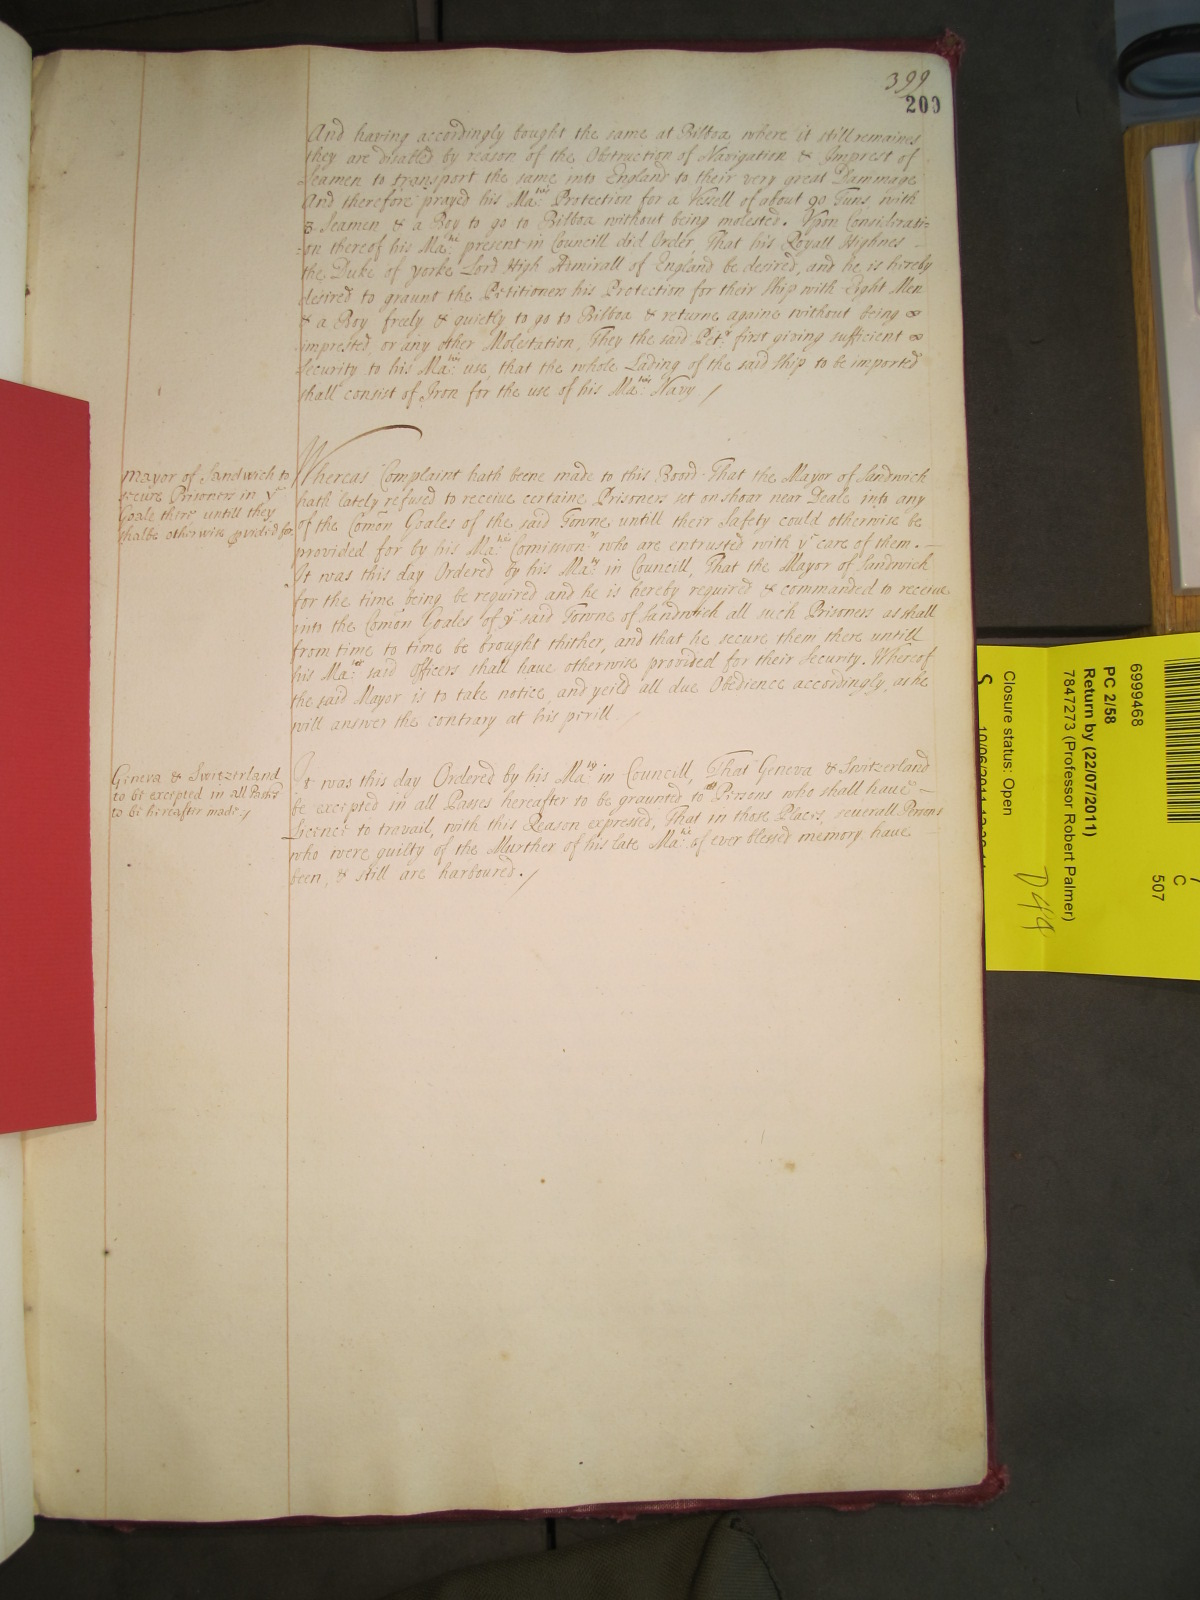 399
209
And having accordingly bought the same at Bilboa, where it still remaines
they are disabled by reason of the Obstruction of Navigation & Imprest of
Seamen to transport the same into England to their very great Dammage
And therefore prayed his Ma:ties Protection for a Vessell of about 90 Tuns, with
8 Seamen & a Boy to go to Bilboa without being molested. Vpon Considerati-
on thereof his Ma:tie present in Councill did Order, That his Royall Highnes
the Duke of yorke Lord High Admirall of England be desired, and he is hereby
desired to graunt the Petitioners his Protection for their Ship with Eight Men
& a Boy freely & quietly to go to Bilboa & returne againe without being
imprested, or any other Molestation, They the said Pet:rs first giving sufficient
security to his Ma:ties use, that the whole Lading of the said Ship to be imported
shall consist of Iron for the use of his Ma:ties Navy /
Mayor of Sandwich to
secure Prisoners in ye
Goale there untill they
shalbe otherwise pvided for
Whereas Complaint hath beene made to this Boord That the Mayor of Sandwich
hath lately refused to receive certaine Prisoners set on shoar near Deale into any
of the Comōn Goales of the said Towne untill their Safety could otherwise be
provided for by his Ma:ties Comissionrs who are entrusted with ye care of them. —
It was this day Ordered by his Ma:ty in Councill, That the Mayor of Sandwich
for the time being be required and he is hereby required & commanded to receive
into the Comōn Goales of ye said Towne of Sandwich all such Prisoners as shall
from time to time be brought thither, and that he secure them there untill
his Ma:ties said Officers shall have otherwise provided for their Security. Whereof
the said Mayor is to take notice, and yeild all due Obedience accordingly, as he
will answer the contrary at his perill /
Geneva & Switzerland
to be excepted in all Passes
to be hereafter made /
It was this day Ordered by his Ma:ty in Councill, That Geneva & Switzerland
be excepted in all Passes hereafter to be graunted to all Persons who shall have —
Licence to travail, with this Reason expressed, That in those Places, severall Persons
who were guilty of the Murther of his late Ma:tie of ever blessed memory have
been, & still are harboured. /
6999468
PC 2/58
Return by (22/07/2011)
7847273 (Professor Robert Palmer)
Closure status: Open
C
507
D44